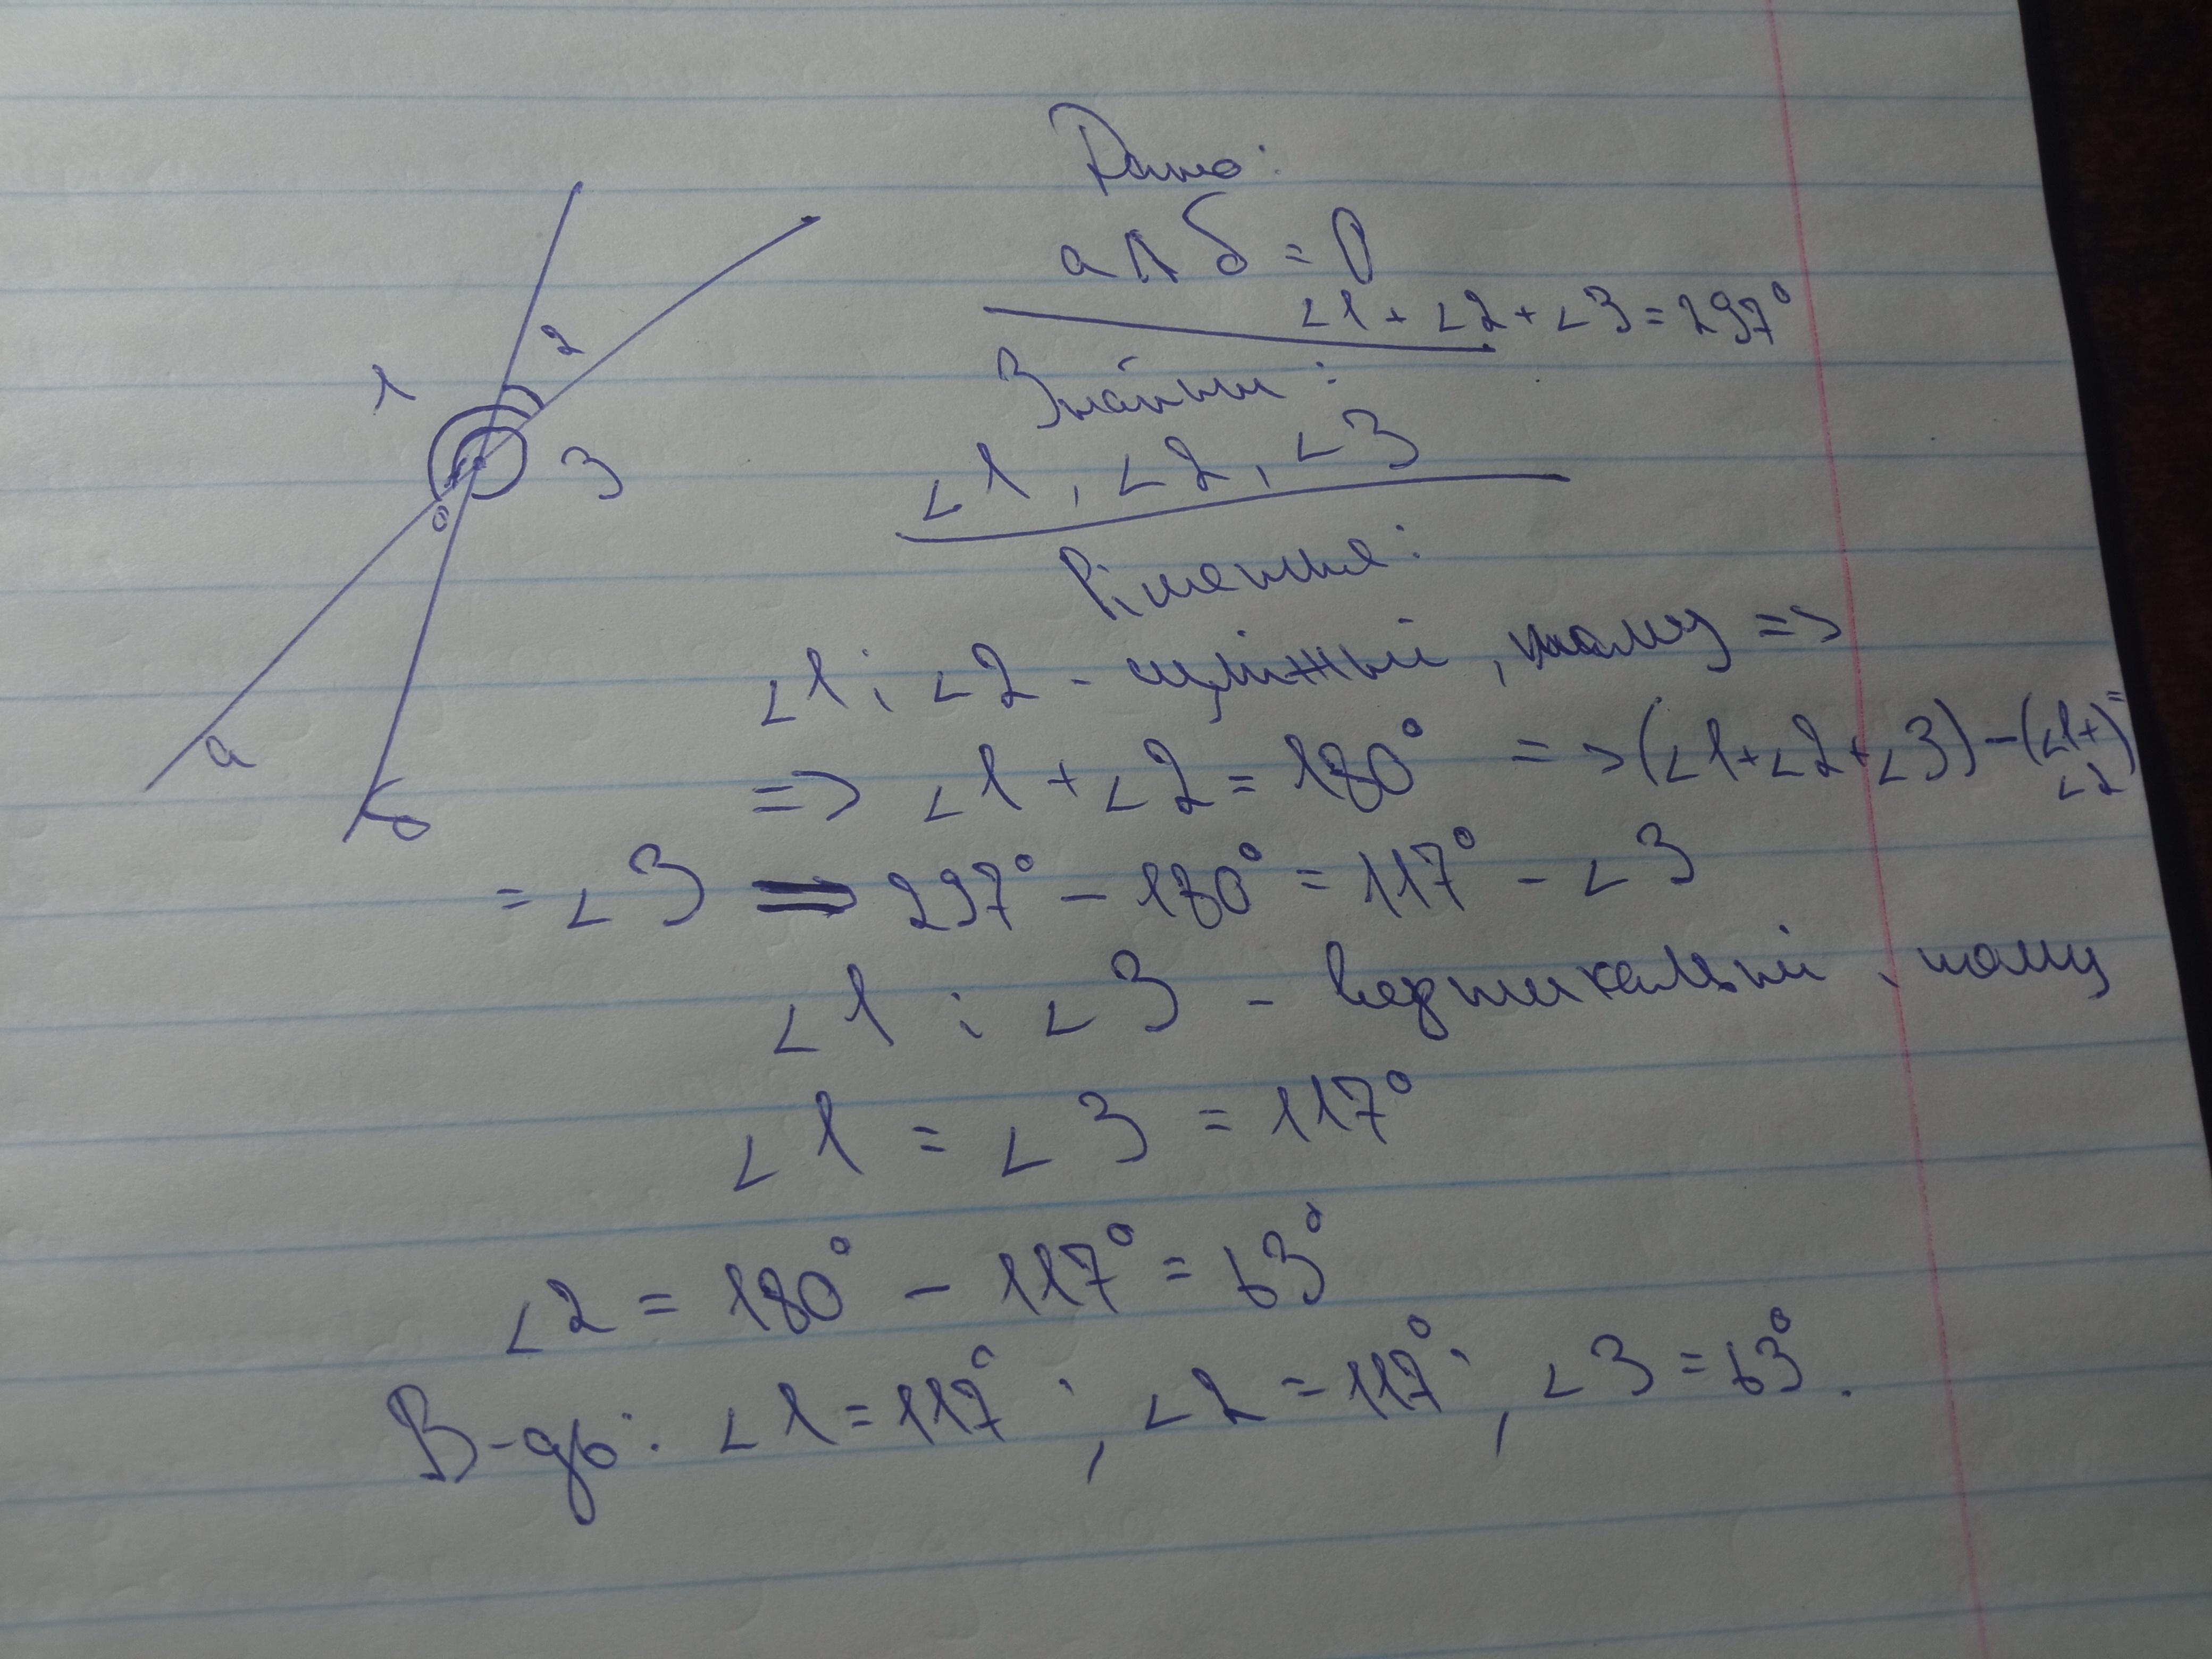 Дано:
a ∩ б = 0
∠1 + ∠2 + ∠3 = 297°
Знайти:
∠1, ∠2, ∠3
Рішення:
∠1 і ∠2 - суміжні, тому =>
=> ∠1 + ∠2 = 180° => (∠1+∠2+∠3) - (∠1+∠2) =
= ∠3 => 297° - 180° = 117° - ∠3
∠1 і ∠3 - вертикальні, тому
∠1 = ∠3 = 117°
∠2 = 180° - 117° = 63°
В-дь: ∠1 = 117°; ∠2 = 117°; ∠3 = 63°.
1
2
3
0
a
б